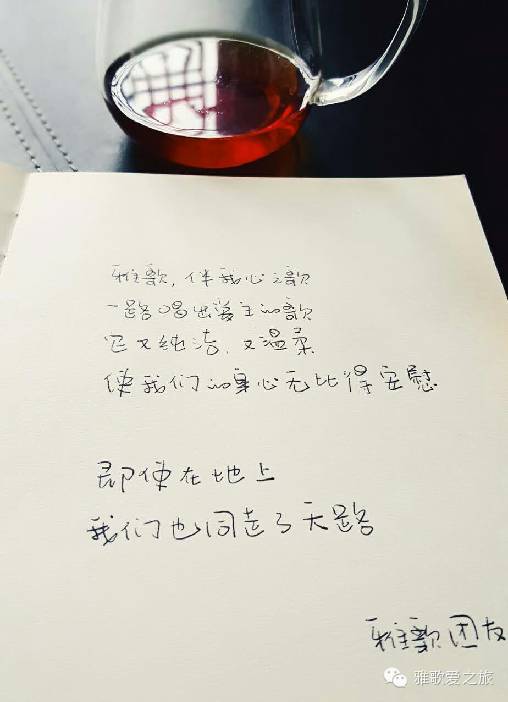 雅歌，伴我心之歌
一路唱出美主的歌
它又纯洁，又温柔
使我们的身心无比得安慰
即使在地上
我们也同走了天路
雅歌团友
雅歌爱之旅